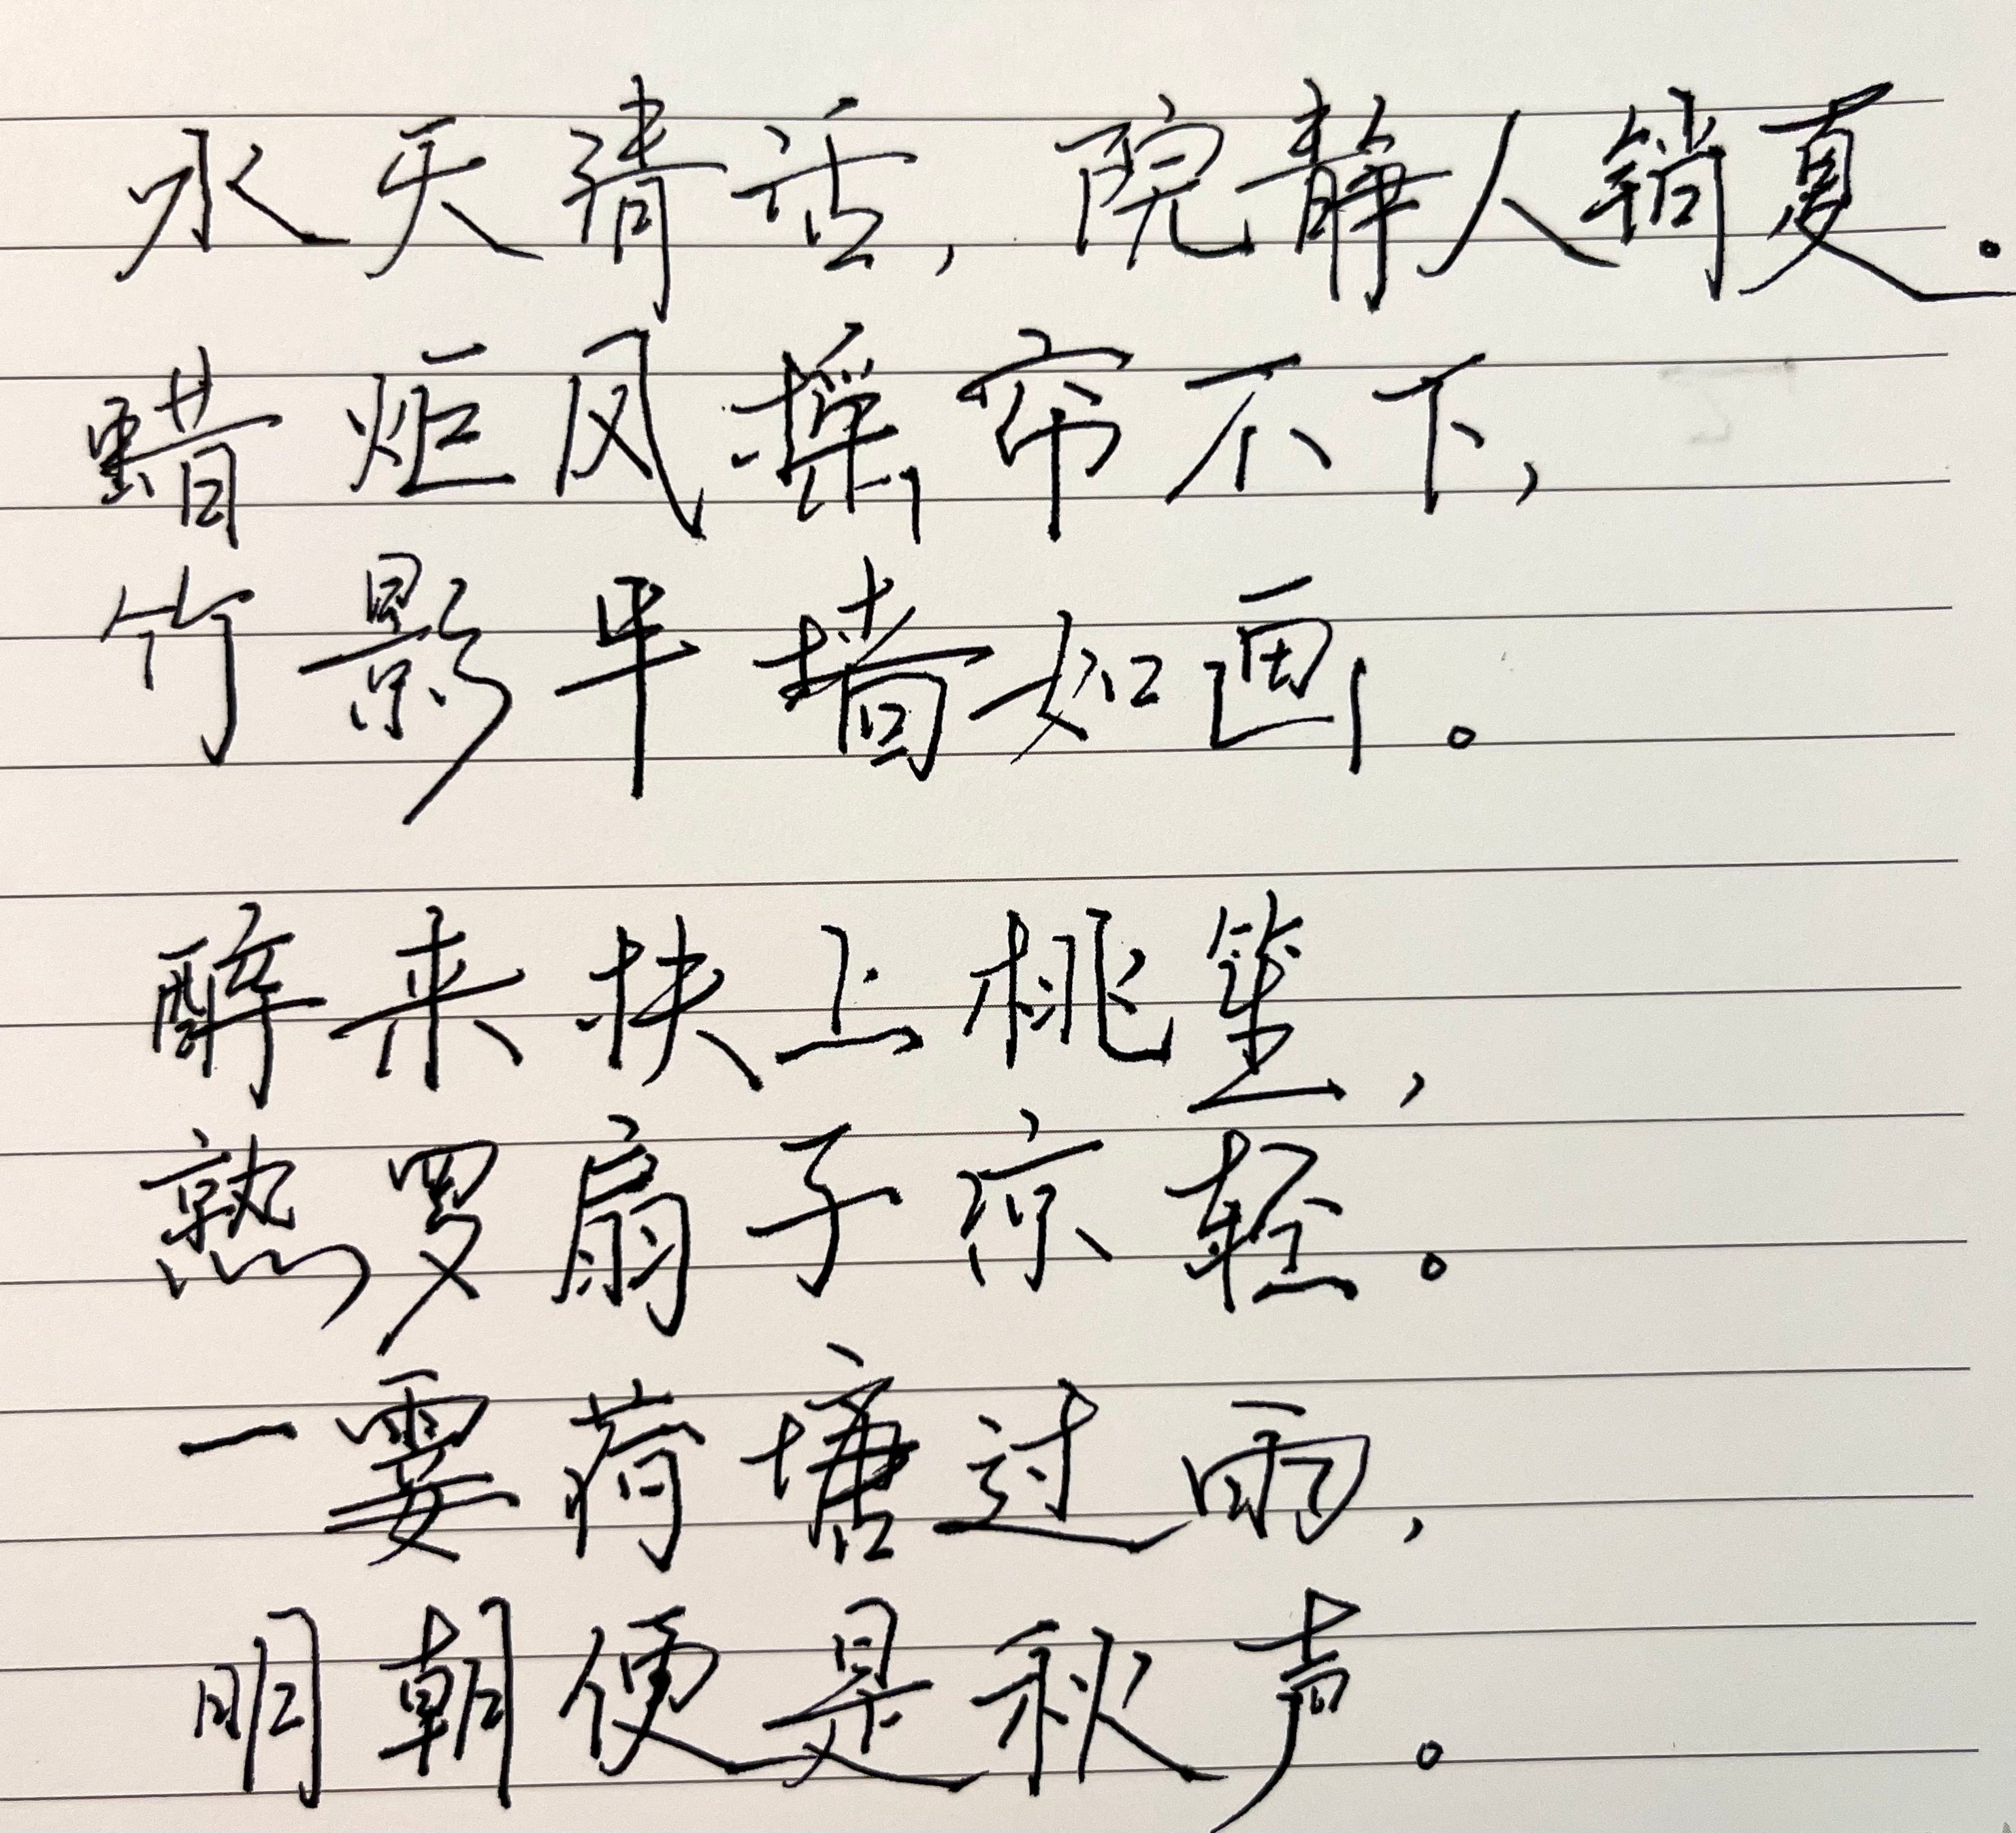 水天清话，院静人销夏。
蜡炬风摇帘不下，
竹影半墙如画。
醉来扶上桃笙，
熟罗扇子凉轻。
一霎荷塘过雨，
明朝便是秋声。